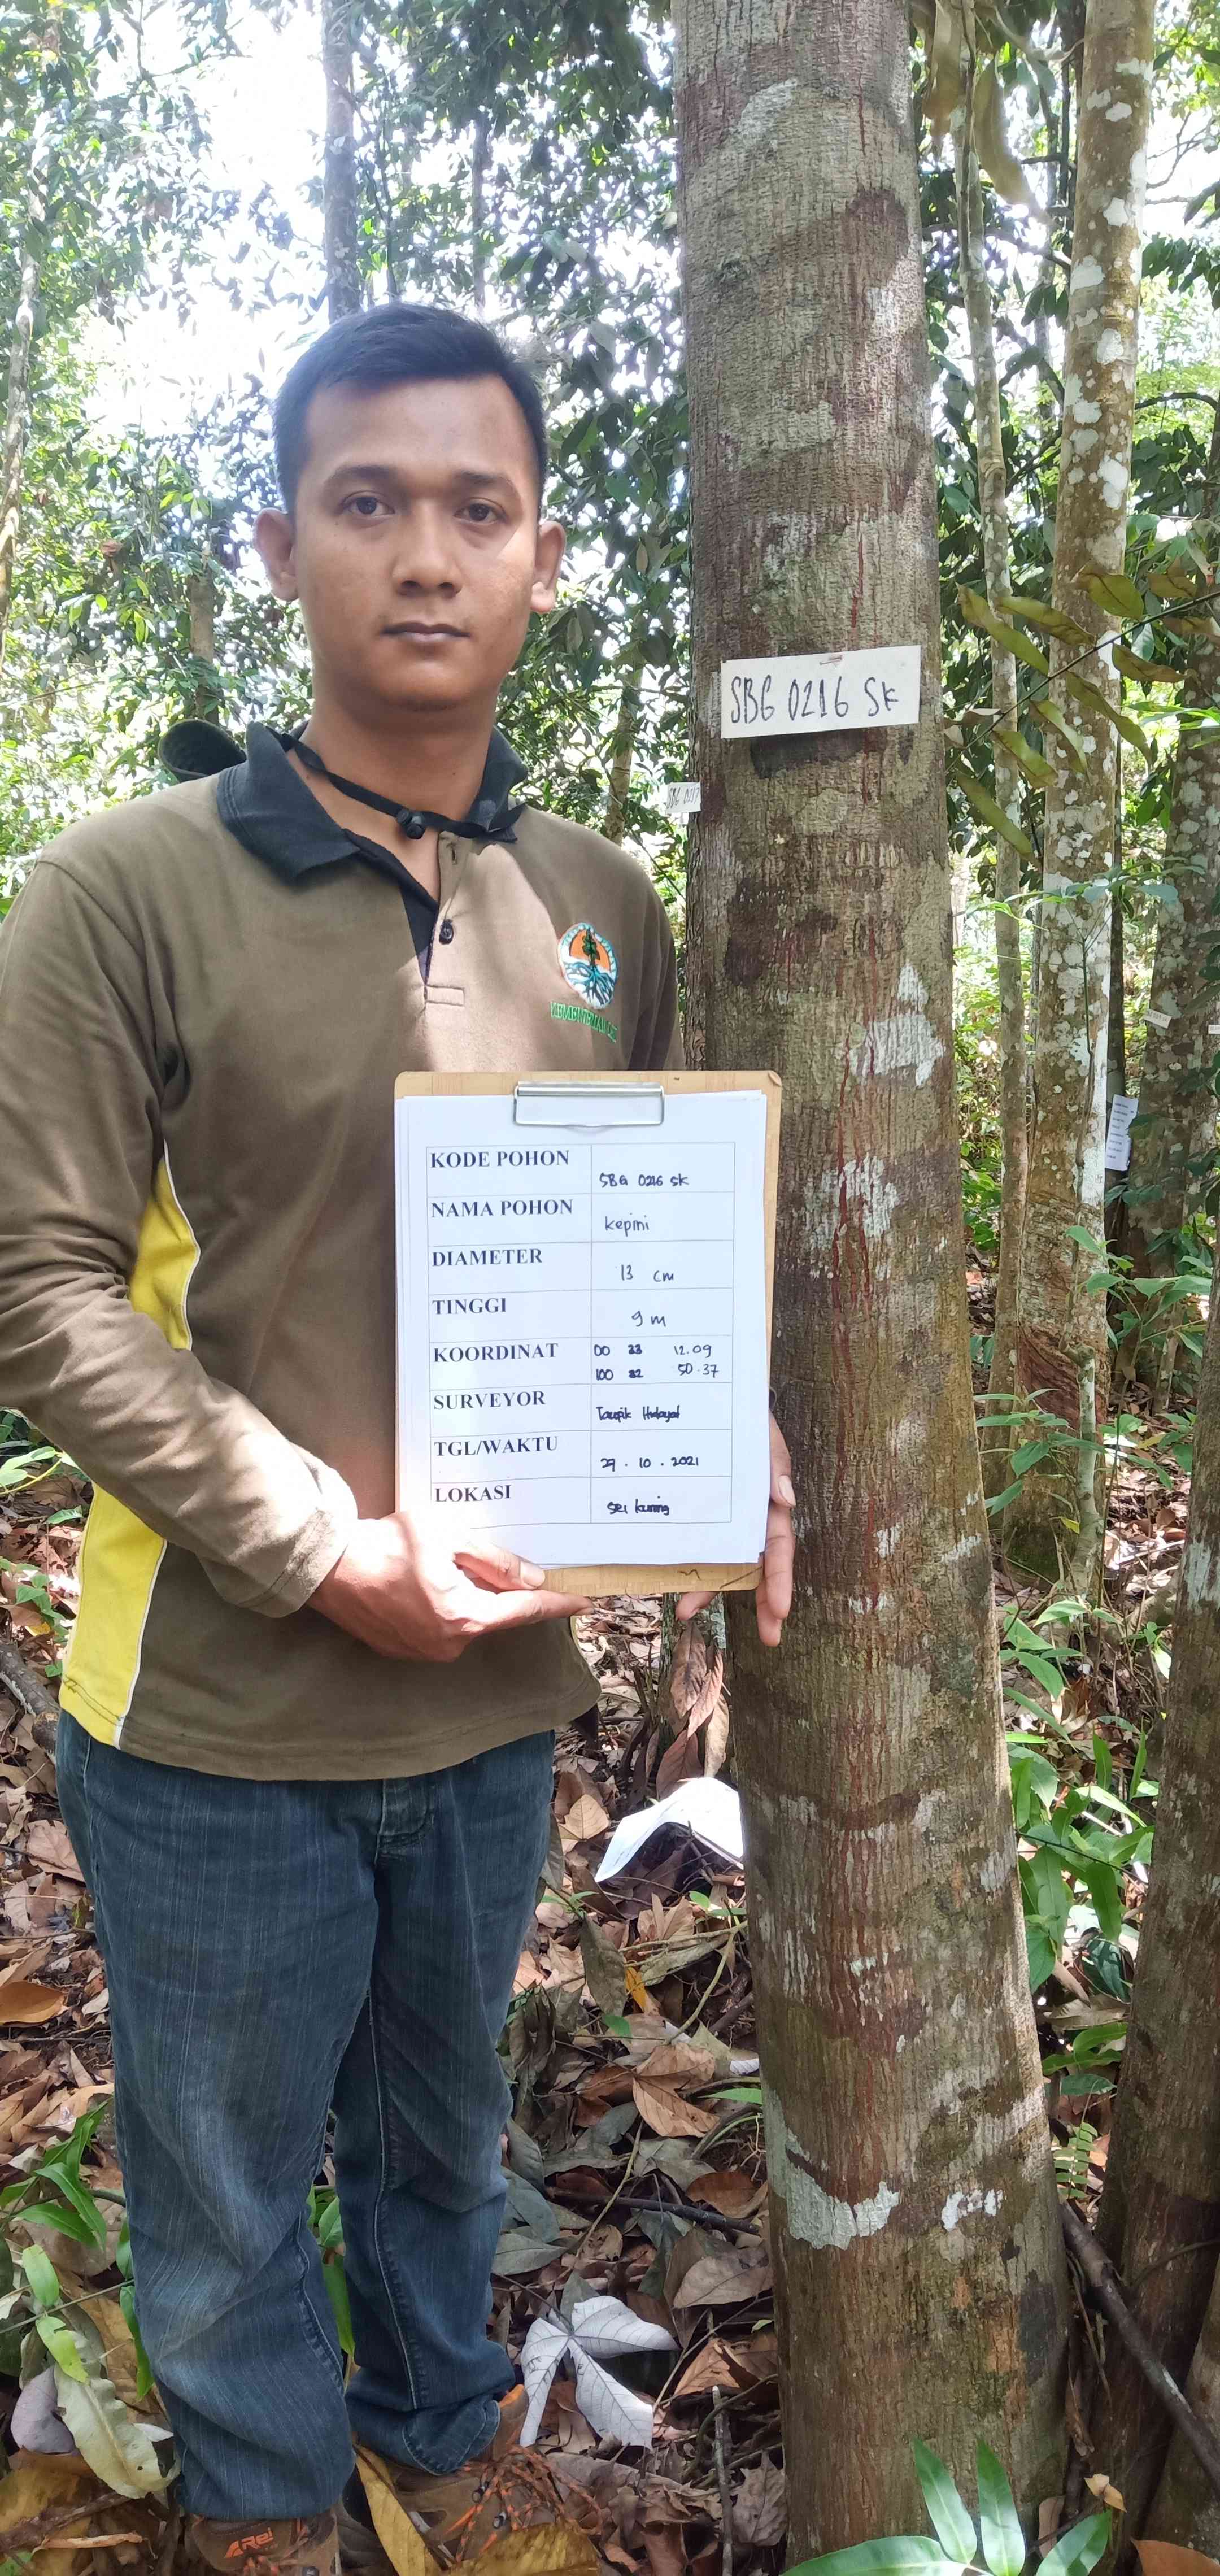 SBG 0216 SK
SBG 0217
KODE POHON SBG 0216 SK
NAMA POHON kepini
DIAMETER 13 cm
TINGGI 9 m
KOORDINAT 00 33 12.09
100 32 50.37
SURVEYOR Taupik Hidayat
TGL/WAKTU 29 . 10 . 2021
LOKASI sei kuning
AREI